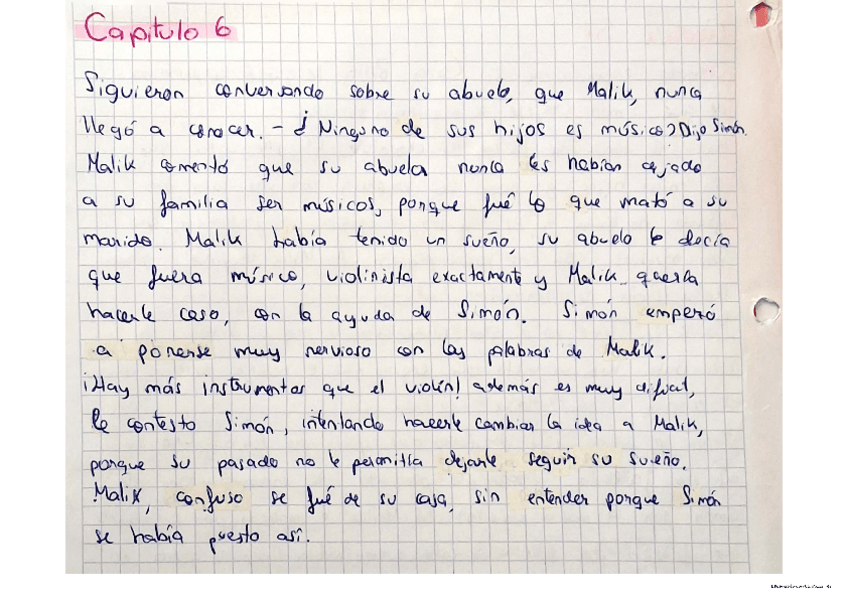 Capitulo 6
Siguieron conversando sobre su abuelo, que Malik, nunca
llegó a conocer. - ¿ Ninguno de sus hijos es músico? Dijo Simón.
Malik comentó que su abuela nunca les habían dejado
a su familia ser músicos, porque fué lo que mató a su
marido. Malik había tenido un sueño, su abuelo le decía
que fuera músico, violinista exactamente y Malik quería
hacerle caso, con la ayuda de Simón. Simón empezó
a ponerse muy nervioso con las palabras de Malik.
¡Hay más instrumentos que el violín! además es muy difícil,
le contesto Simón, intentando hacerle cambiar la idea a Malik,
porque su pasado no le permitía dejarle seguir su sueño.
Malik, confuso se fué de su casa, sin entender porque Simón
se había puesto así.